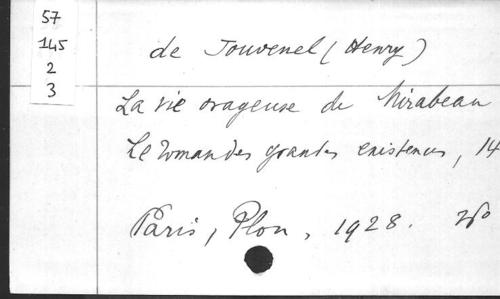 57
145
2
3
de Jouvenel (Henry)
La vie orageuse de Mirabeau
Le roman des grandes existences, 14
Paris, Plon, 1928.